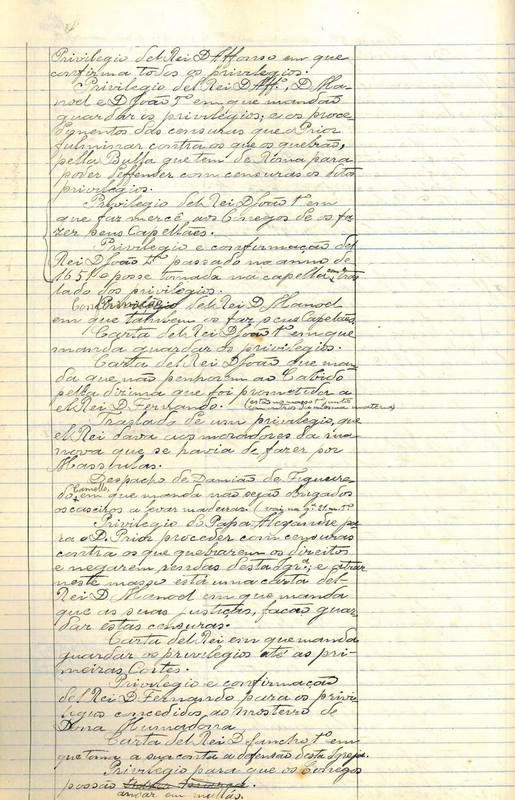 Privilegio del Rei D Affonso em que
confirma todos os privilegios.
Privilegio del Rei D Aff.º, D Ma-
noel e D João 1º em que mandão
guardar os privilegios; e os proce-
dimentos das censuras que o Prior
fulminar contra os que os quebrão,
pella Bulla que tem de Roma para
poder deffender com censuras os ditos
privilegios.
Privilegio del Rei D João 1º em
que faz mercê, aos Conegos de os fa-
zer seus Capellães.
Privilegio e confirmação del
Rei D João 4º passado no anno de
1651 e posse tomada na capella com o tras-
lado dos privilegios.
Privilegio del Rei D Manoel
em que tambem os faz seus Capelães.
Carta del Rei D João 1º em que
manda guardar os privilegios.
Carta del Rei D João que man-
da que não penhorem ao Cabido
pella dizima que foi promettida a
el Rei D. Fernando. (está no masso 1º junto
com outros da mesma materia)
Traslado de um privilegio, que
el Rei dava aos moradores da rua
nova que se havia de fazer por
Massoulas.
Despacho de Damião de Figueire-
do Camello, em que manda não sejão obrigados
os caseiros a levar madeiras. (vai na
Privilegio do Papa Alexandre pa-
ra o D. Prior proceder com censuras
contra os que quebrarem os direitos
e negarem rendas desta Igr.ª; e atraz
neste masso está uma carta del-
Rei D. Manoel em que manda
que as suas justiças, facão guar-
dar estas censuras.
Carta del Rei em que manda
guardar os privilegios até as pri-
meiras Cortes.
Privilegio e confirmação
del Rei D. Fernando para os privi-
legios concedidos ao Mosteiro de
Dona Mumadona.
Carta del Rei D Sancho 1º em
que toma a sua conta a defensão desta Igreja.
Privilegio para que os Conegos
possão
andar em mullas.